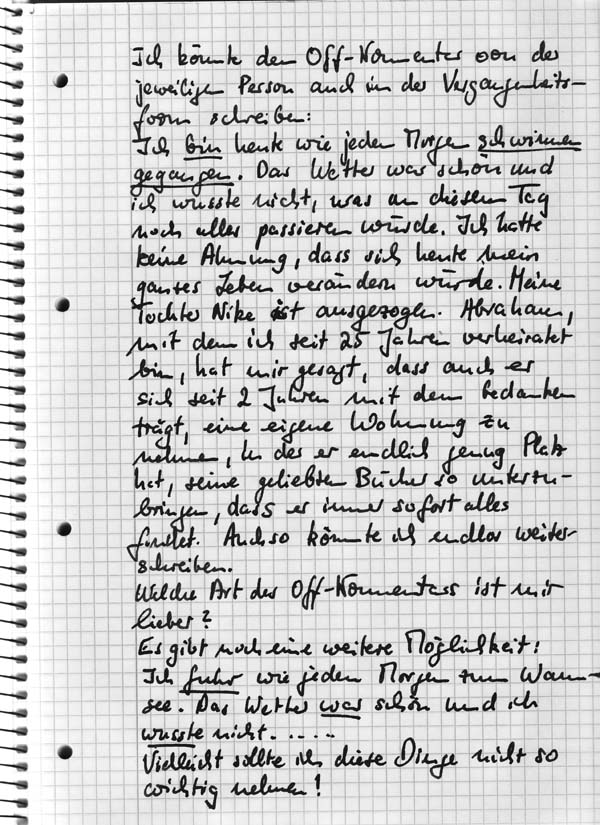 Ich könnte den Off-Kommentar von der
jeweiligen Person auch in der Vergangenheits-
form schreiben:
Ich bin heute wie jeden Morgen schwimmen
gegangen. Das Wetter war schön und
ich wusste nicht, was an diesem Tag
noch alles passieren würde. Ich hatte
keine Ahnung, dass sich heute mein
ganzes Leben verändern würde. Meine
Tochter Nike ist ausgezogen. Abraham,
mit dem ich seit 25 Jahren verheiratet
bin, hat mir gesagt, dass auch er
sich seit 2 Jahren mit dem Gedanken
trägt, eine eigene Wohnung zu
nehmen, in der er endlich genug Platz
hat, seine geliebten Bücher so unterzu-
bringen, dass er immer sofort alles
findet. Auch so könnte ich endlos weiter-
schreiben.
Welche Art des Off-Kommentars ist mir
lieber?
Es gibt noch eine weitere Möglichkeit:
Ich fuhr wie jeden Morgen zum Wann-
see. Das Wetter war schön und ich
wusste nicht. .....
Vielleicht sollte ich diese Dinge nicht so
wichtig nehmen!